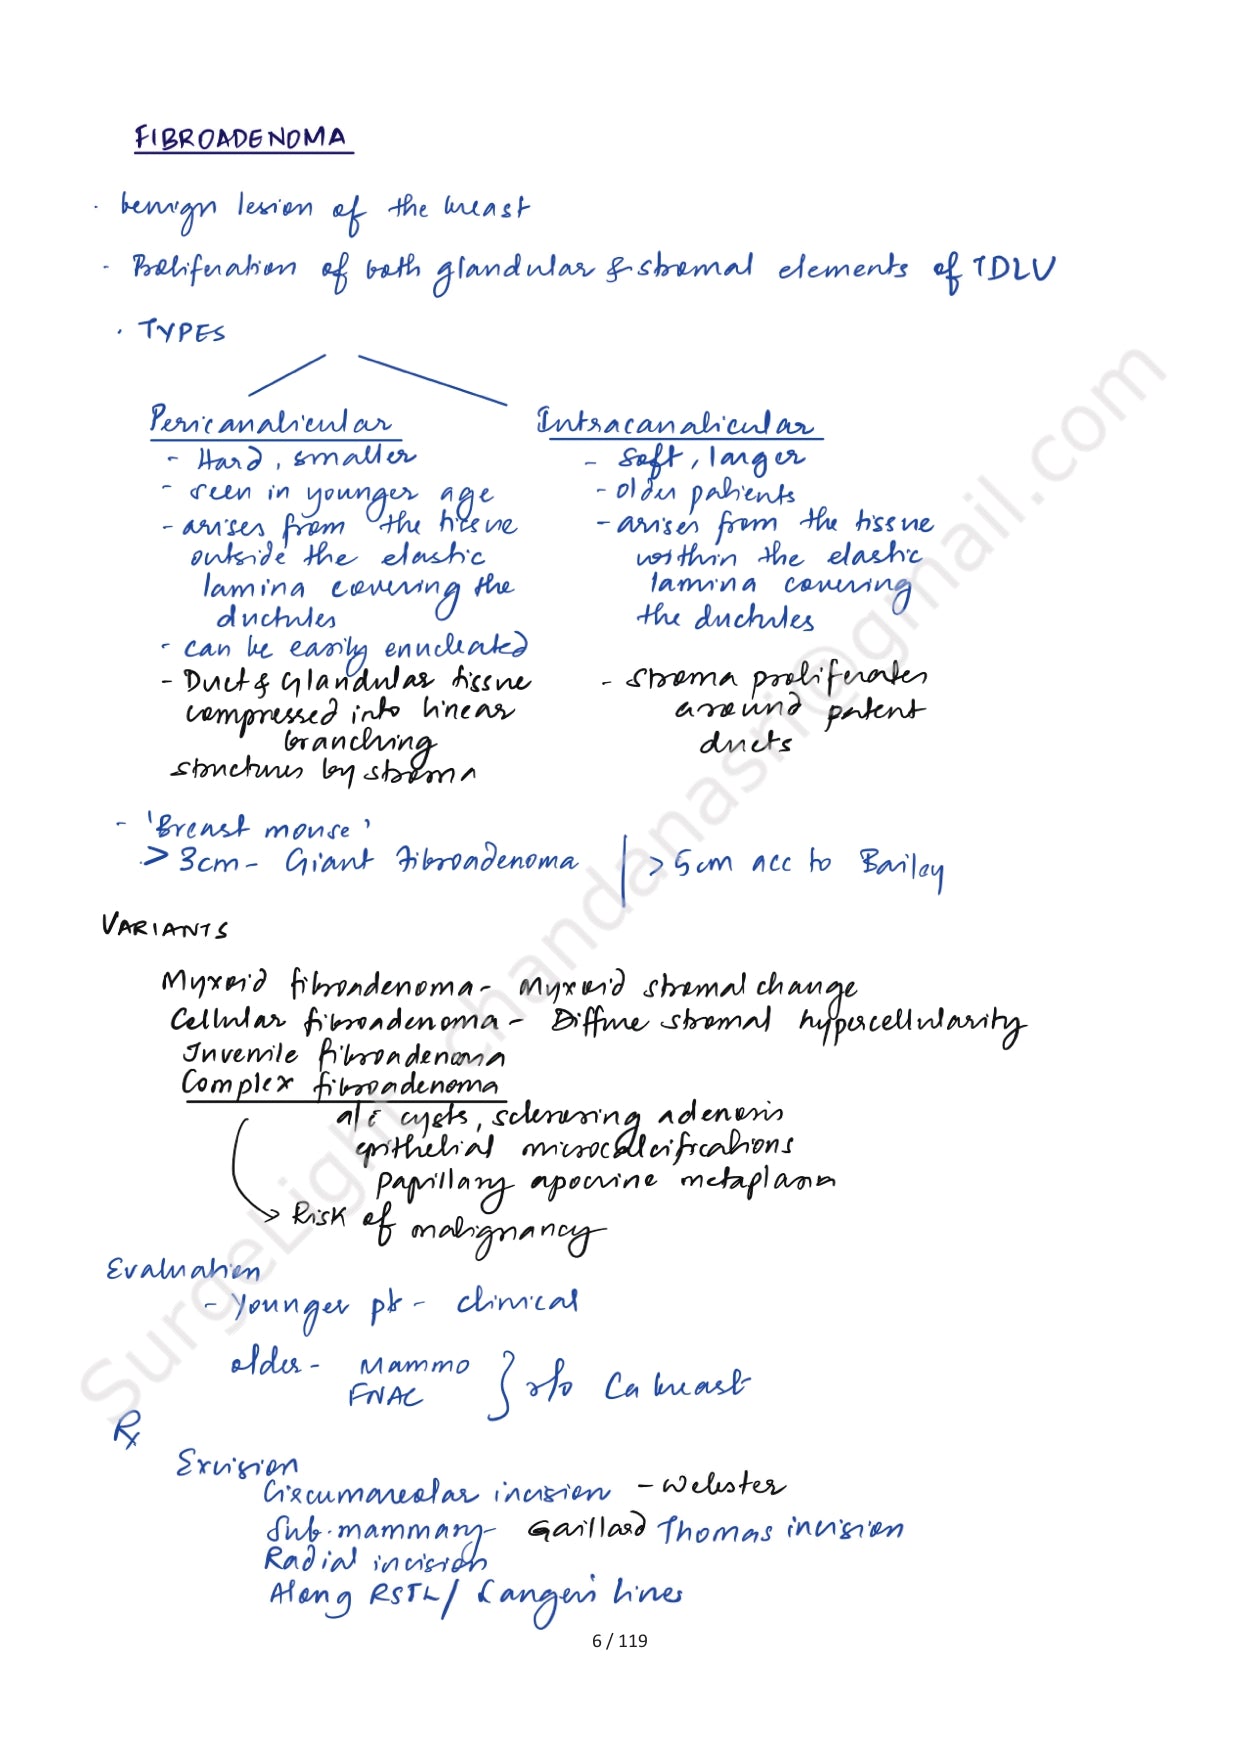 FIBROADENOMA
· benign lesion of the breast
- Proliferation of both glandular & stromal elements of TDLU
· TYPES
Pericanalicular
- Hard, smaller
- seen in younger age
- arises from the tissue
outside the elastic
lamina covering the
ductules
- can be easily enucleated
- Duct & Glandular tissue
compressed into linear
branching
structures by stroma
Intracanalicular
- Soft, larger
- older patients
- arises from the tissue
within the elastic
lamina covering
the ductules
- stroma proliferates
around patent
ducts
- 'Breast mouse'
> 3cm - Giant Fibroadenoma | > 5cm acc to Bailey
VARIANTS
Myxoid fibroadenoma - Myxoid stromal change
Cellular fibroadenoma - Diffuse stromal hypercellularity
Juvenile fibroadenoma
Complex fibroadenoma
a/c cysts, sclerosing adenosis
epithelial microcalcifications
papillary apocrine metaplasia
→ Risk of malignancy
Evaluation
- Younger pt - clinical
older - Mammo
FNAC } r/o Ca breast
Rx
Excision
Circumareolar incision - Webster
Sub-mammary - Gaillard Thomas incision
Radial incision
Along RSTL / Langer's lines
6 / 119
SurgeLight chandanasri@gmail.com